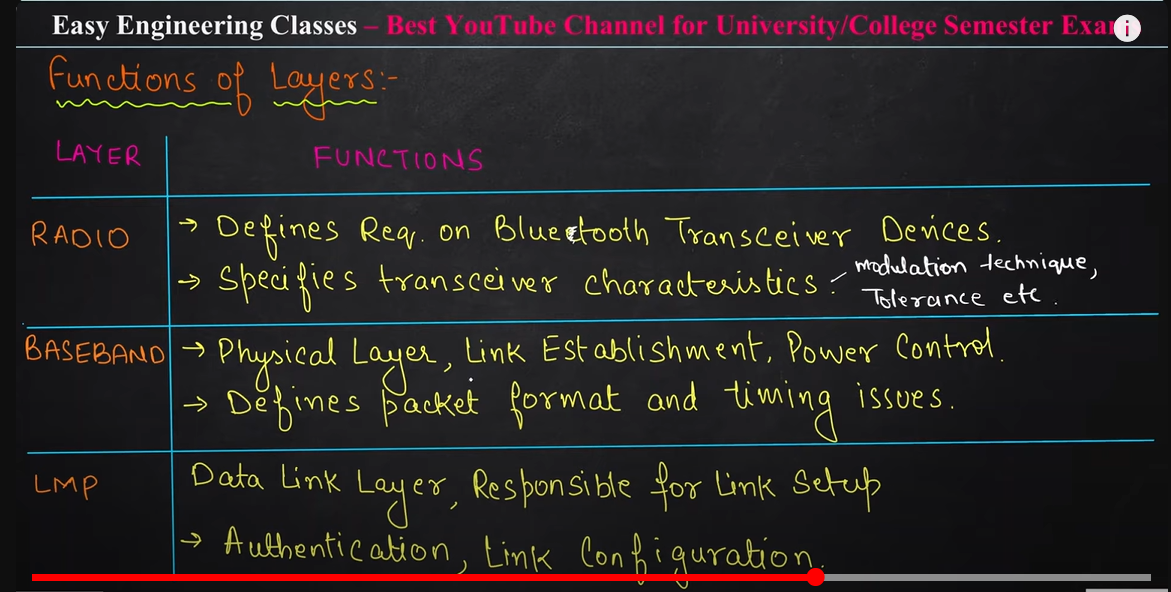 Easy Engineering Classes – Best YouTube Channel for University/College Semester Exa
Functions of Layers:-
LAYER FUNCTIONS
RADIO → Defines Req. on Bluetooth Transceiver Devices.
→ Specifies transceiver characteristics : modulation technique,
Tolerance etc.
BASEBAND → Physical Layer, Link Establishment, Power Control.
→ Defines packet format and timing issues.
LMP Data Link Layer, Responsible for Link Setup
→ Authentication, Link Configuration.